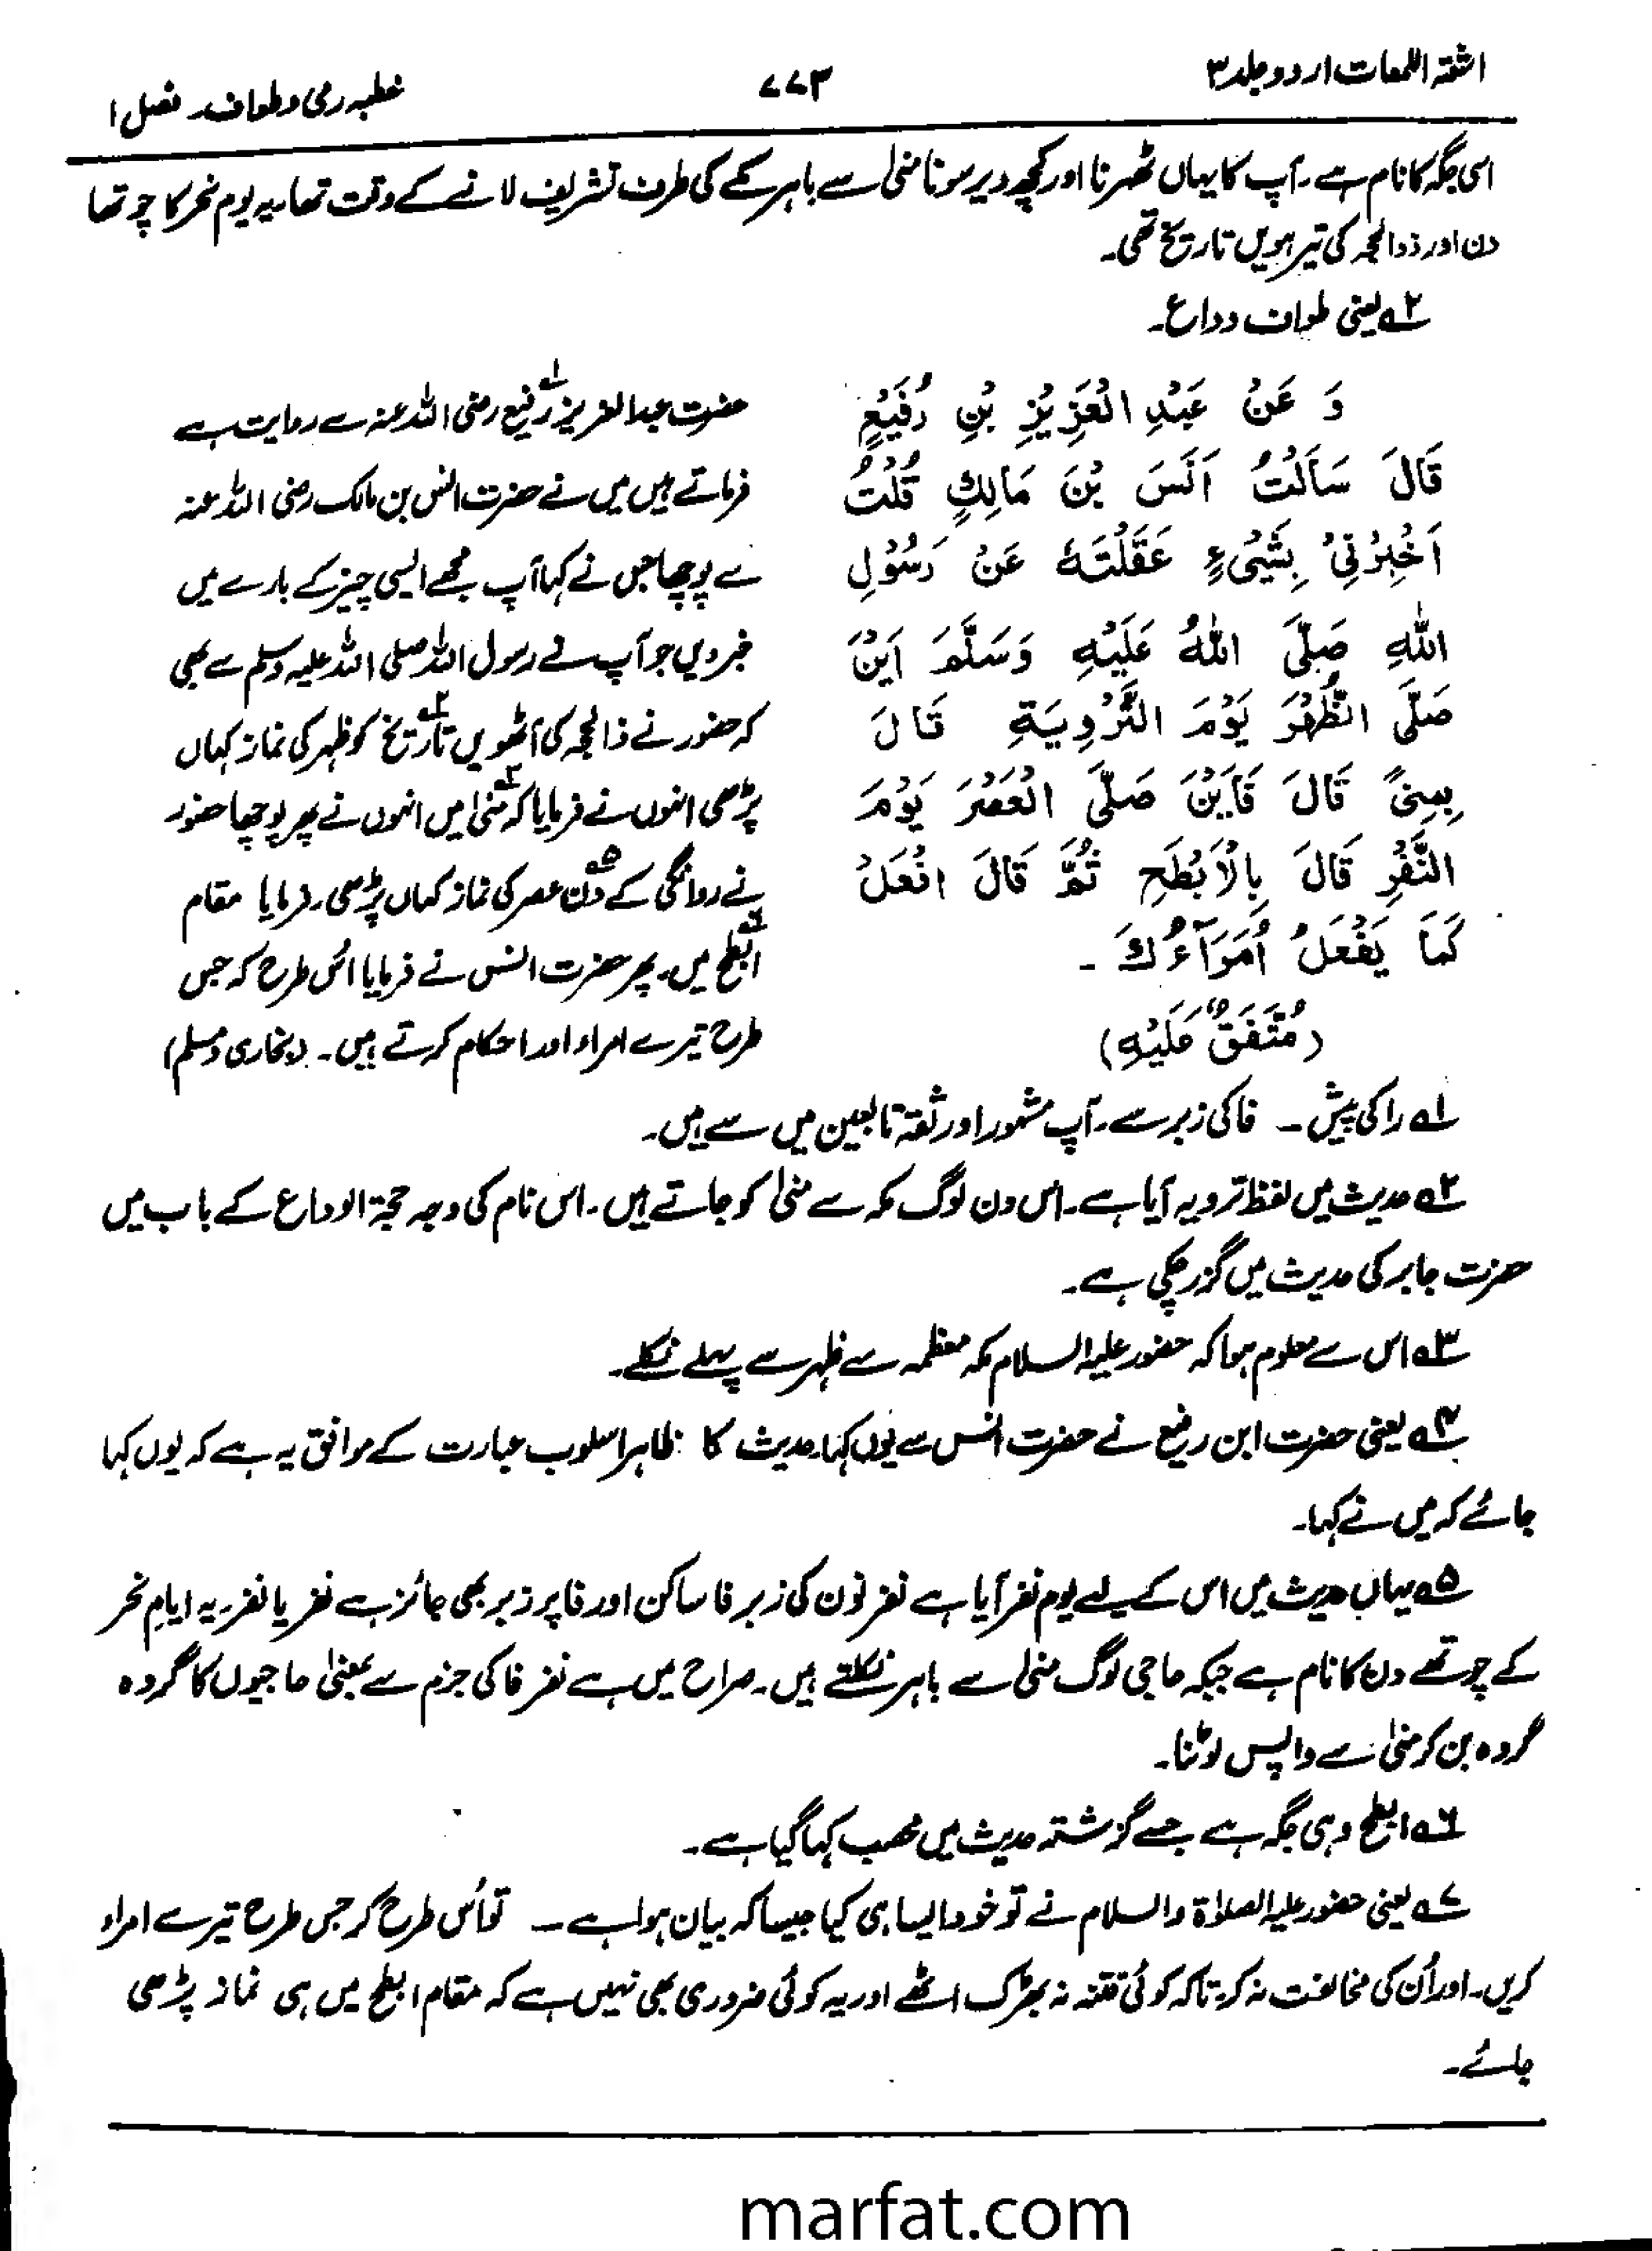 اشعۃ اللمعات اردو جلد ۳
۷۷۳
خطبہ رمی و طواف۔ فصل ۱
اسی جگہ کا نام ہے۔ آپ کا یہاں ٹھہرنا اور کچھ دیر سونا منیٰ سے باہر مکے کی طرف تشریف لانے کے وقت تھا۔ یہ یوم نحر کا چوتھا
دن اور ذوالحجہ کی تیرہویں تاریخ تھی۔
۲؎ یعنی طواف وداع۔
وَ عَنْ عَبْدِ الْعَزِيْزِ بْنِ رُفَيْعٍ
قَالَ سَاَلْتُ اَنَسَ بْنَ مَالِكٍ قُلْتُ
اَخْبِرْنِيْ بِشَيْءٍ عَقَلْتَهٗ عَنْ رَسُوْلِ
اللّٰهِ صَلَّى اللّٰهُ عَلَيْهِ وَسَلَّمَ اَيْنَ
صَلَّى الظُّهْرَ يَوْمَ التَّرْوِيَةِ قَالَ
بِمِنًى قَالَ فَاَيْنَ صَلَّى الْعَصْرَ يَوْمَ
النَّفْرِ قَالَ بِالْاَبْطَحِ ثُمَّ قَالَ افْعَلْ
كَمَا يَفْعَلُ اُمَرَآءُكَ ۔
(مُتَّفَقٌ عَلَيْهِ)
حضرت عبدالعزیز۱؎ رفیع رضی اللہ عنہ سے روایت ہے
فرماتے ہیں میں نے حضرت انس بن مالک رضی اللہ عنہ
سے پوچھا میں نے کہا آپ مجھے ایسی چیز کے بارے میں
خبر دیں جو آپ نے رسول اللہ صلی اللہ علیہ وسلم سے سمجھی
کہ حضور نے ذالحجہ کی آٹھویں تاریخ۲؎ کو ظہر کی نماز کہاں
پڑھی انہوں نے فرمایا کہ منیٰ۳؎ میں انہوں نے پھر پوچھا حضور
نے روانگی کے دن۵؎ عصر کی نماز کہاں پڑھی۔ فرمایا مقام
ابطح۶؎ میں۔ پھر حضرت انس نے فرمایا اُس طرح کر جس
طرح تیرے امراء اور احکام کرتے ہیں۔ (بخاری و مسلم)
۱؎ را کی پیش ۔ فا کی زبر سے۔ آپ مشہور اور ثقہ تابعین میں سے ہیں۔
۲؎ حدیث میں لفظ ترویہ آیا ہے۔ اس دن لوگ مکہ سے منیٰ کو جاتے ہیں۔ اس نام کی وجہ حجۃ الوداع کے باب میں
حضرت جابر کی حدیث میں گزر چکی ہے۔
۳؎ اس سے معلوم ہوا کہ حضور علیہ السلام مکہ معظمہ سے ظہر سے پہلے نکلے۔
۴؎ یعنی حضرت ابن رفیع نے حضرت انس سے یوں کہا۔ حدیث کا ظاہر اسلوب عبارت کے موافق یہ ہے کہ یوں کہا
جائے کہ میں نے کہا۔
۵؎ یہاں حدیث میں اس کے لیے یوم نفر آیا ہے نفر نون کی زبر فا ساکن اور فا پر زبر بھی جائز ہے نفر یا نفر۔ یہ ایامِ نحر
کے چوتھے دن کا نام ہے جبکہ حاجی لوگ منیٰ سے باہر نکلتے ہیں۔ صراح میں ہے نفر فا کی جزم سے بمعنیٰ حاجیوں کا گروہ
گروہ بن کر منیٰ سے واپس لوٹنا۔
۶؎ ابطح وہی جگہ ہے جسے گزشتہ حدیث میں محصب کہا گیا ہے۔
۷؎ یعنی حضور علیہ الصلوٰۃ والسلام نے تو خود ایسا ہی کیا جیسا کہ بیان ہوا ہے ۔ تو اُس طرح کر جس طرح تیرے امراء
کریں۔ اور اُن کی مخالفت نہ کر۔ تاکہ کوئی فتنہ نہ بھڑک اٹھے اور یہ کوئی ضروری بھی نہیں ہے کہ مقام ابطح میں ہی نماز پڑھی
جائے۔
marfat.com